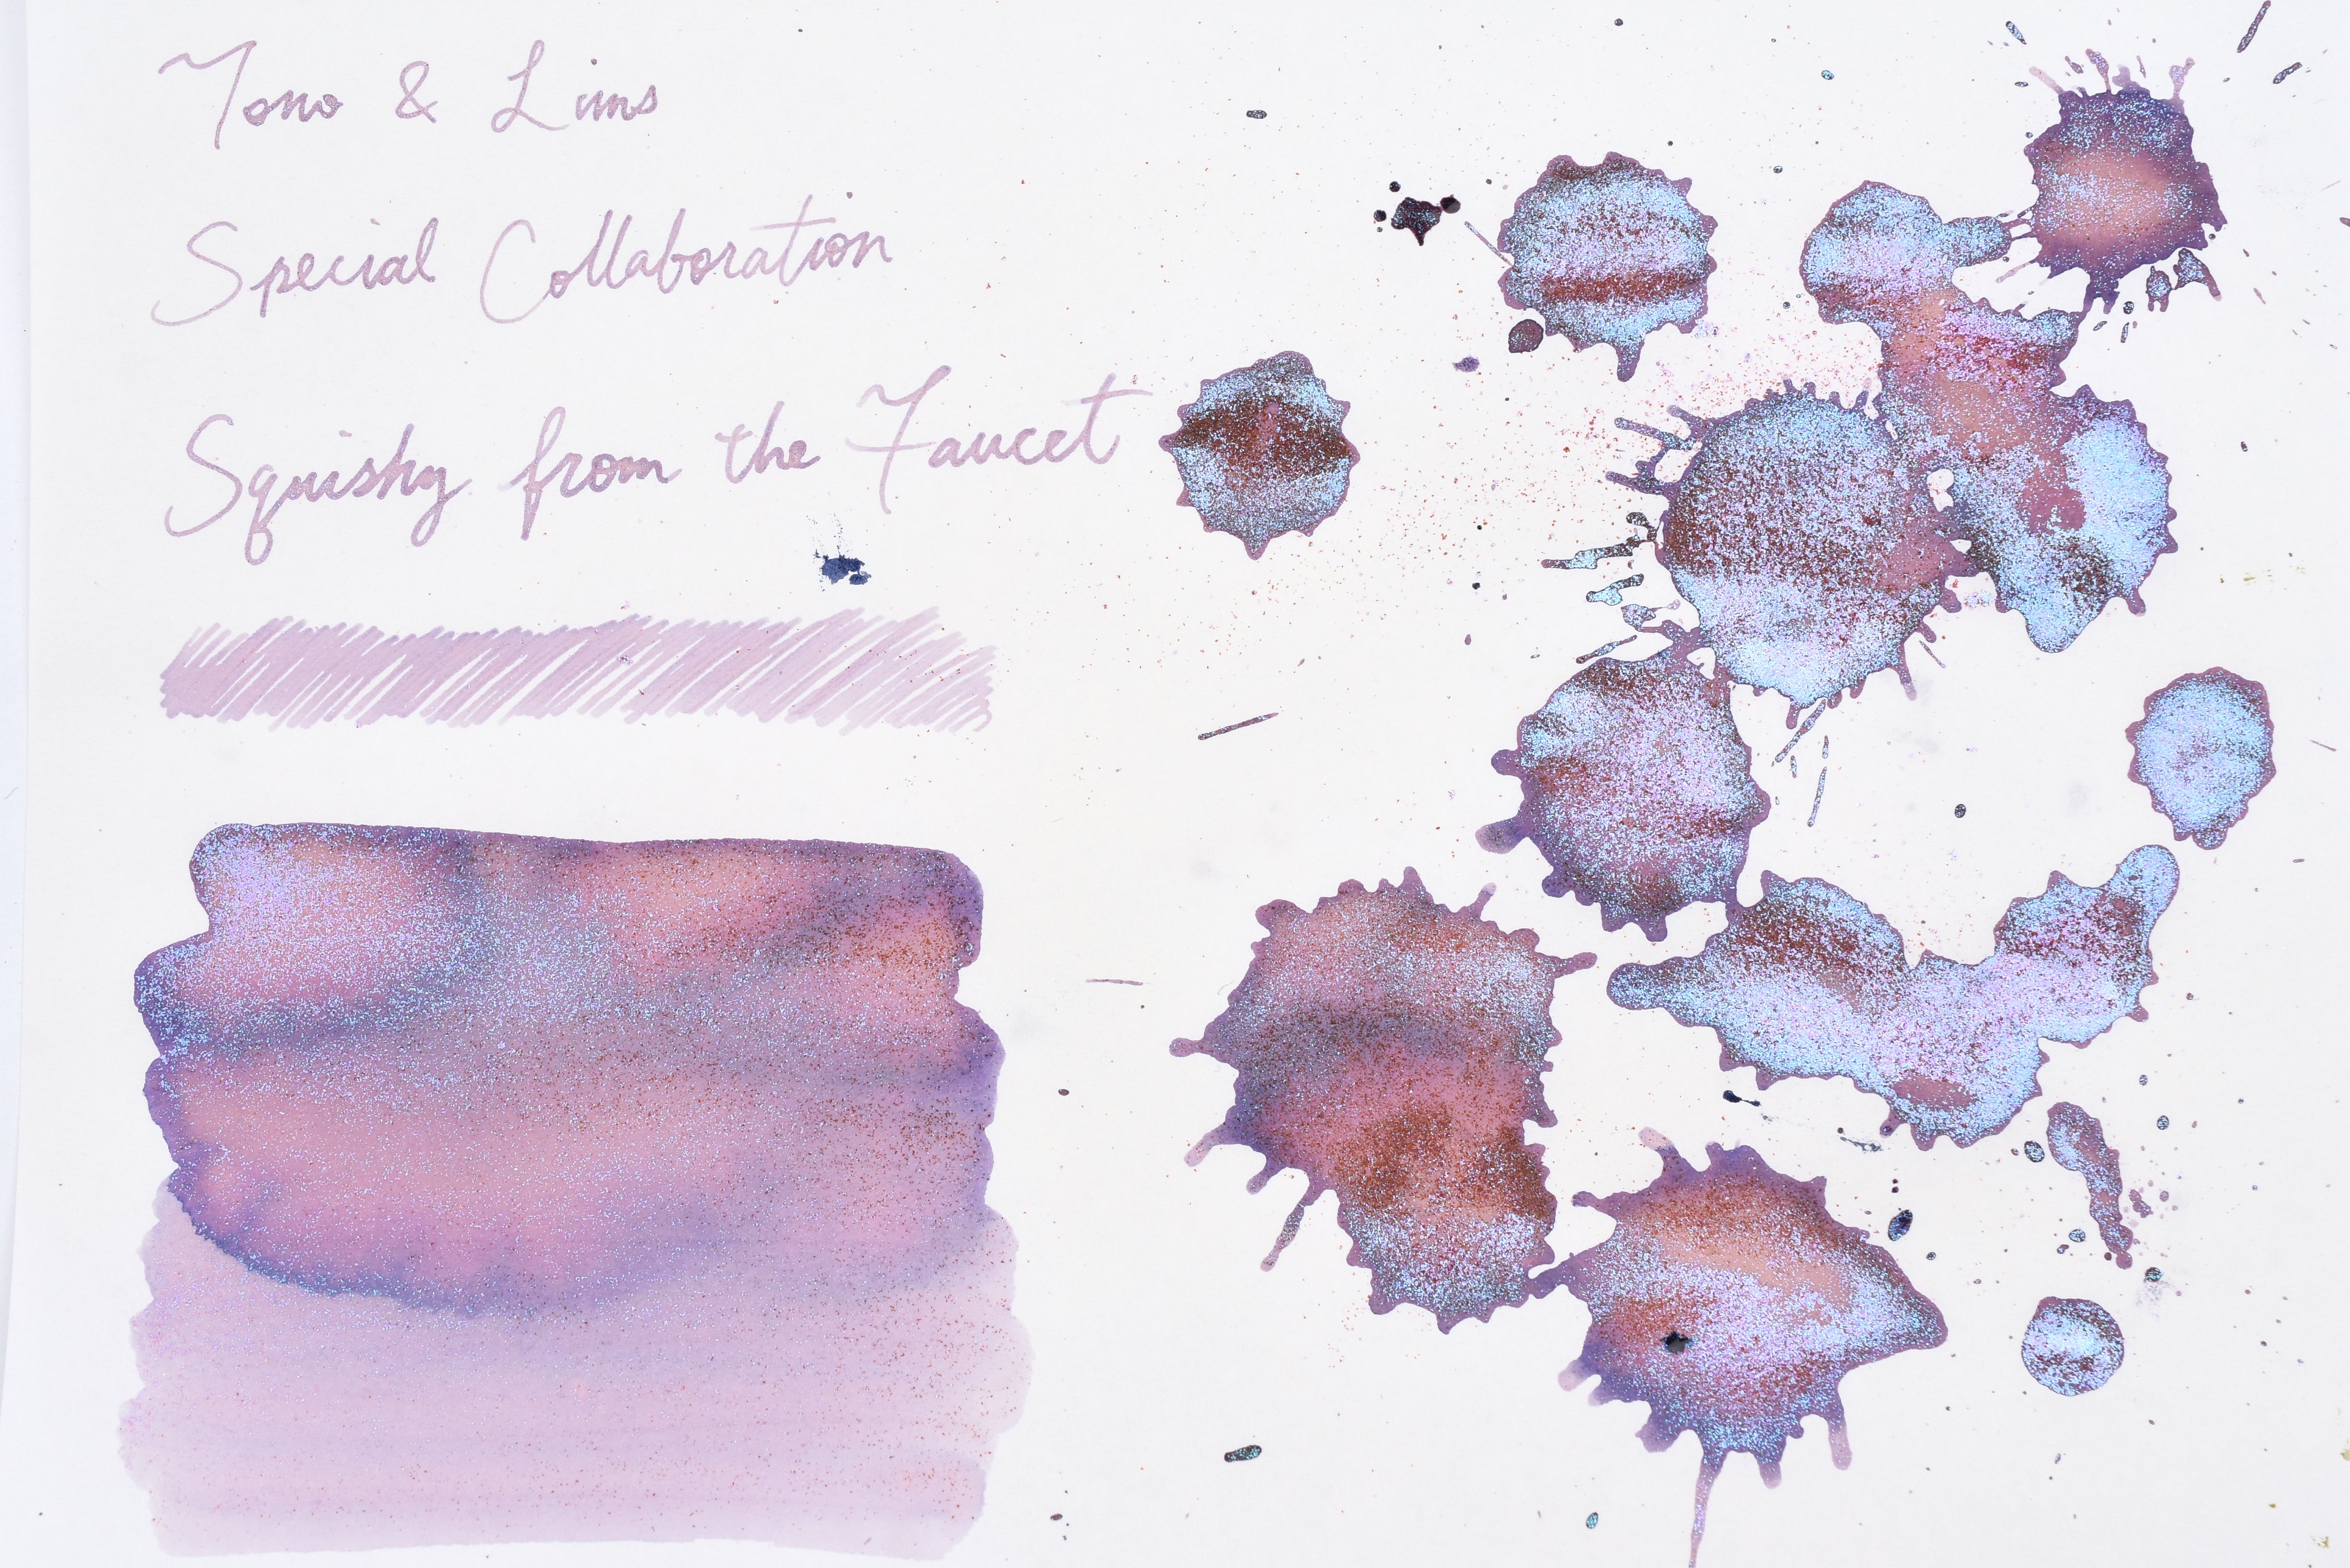 Tono & Lims
Special Collaboration
Squishy from the Faucet